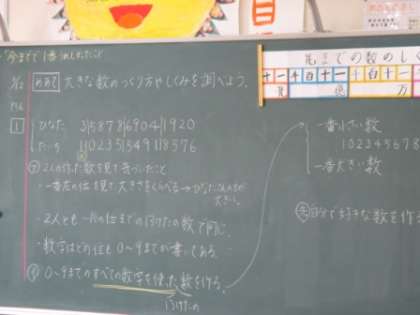 今までで1番
めあて 大きな数のつくり方やしくみを調べよう。
1
ひなた 3|5878|6904|1920
たいち 1|1023|5|549|18576
2人の作った数を見て気づいたこと
・一番左の位を見て大きさをくらべる→ひなたくんの方が大きい
・2人とも一兆の位までの13けたの数で同じ。
・数字はどの位も0~9までが書いてある。
0~9までのすべての数字を使った数を作る。
13けたの
一番小さい数
102345678
一番大きい数
自分で好きな数を作
までの数のしく
十一千百十一千百十一
兆 億 万